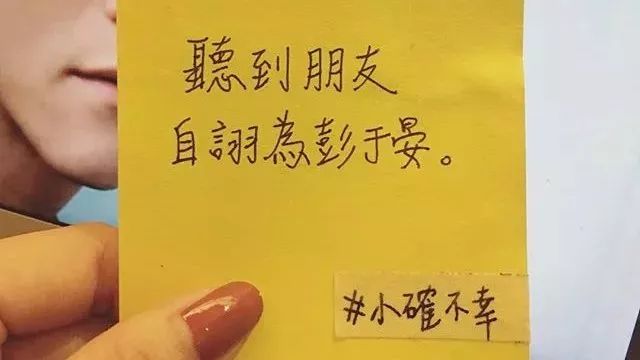 聽到朋友
自詡為彭于晏。
#小確不幸